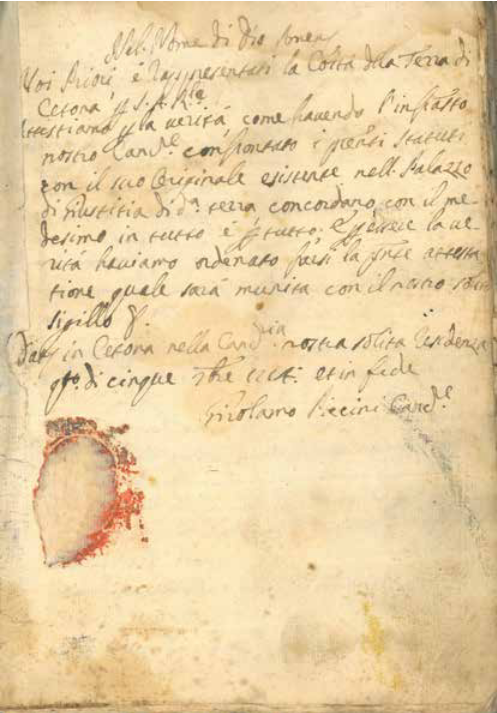 Nel Nome di Dio Amen
Noi Priori e Rappresentati la Co&#x303;ità della Terra di
Cetona p S. A. Rle
Attestiamo p la verità, come havendo l'infrasto
nostro Cancre confrontato i presenti Statuti
con il suo Originale esistente nell. Palazzo
di Giustitia di da terra concordano con il me=
desimo in tutto e p tutto. E p essere la ve=
rità haviamo ordenato farsi la pnte attesta
tione quale sarà munita con il nostro solito
sigillo
Dat in Cetona nella Cancria nostra solita Residenza
qto di cinque et in fede
Girolamo Piccini Cancre